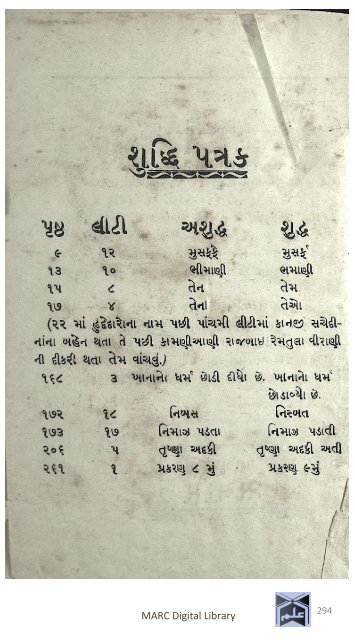 શુદ્ધિ પત્રક
પૃષ્ઠ લીટી અશુદ્ધ શુદ્ધ
૯ ૧૨ મુસર્ફફ મુસર્ફ
૧૩ ૧૦ ભીમાણી ભમાણી
૧૫ ૮ તેન તેમ
૧૭ ૪ તેના તેઓ
(૨૨ માં હુદ્દેદારોના નામ પછી પાંચમી લીટીમાં કાનજી સચેદી-
નાંના બહેન થતા તે પછી કામણીઆણી રાજબાઇ રેમતુલા વીરાણી
ની દીકરી થતા તેમ વાંચવું.)
૧૬૮ ૩ ખાનાનો ધર્મ છોડી દીધો છે. ખાનાનો ધર્મ
છોડાવ્યો છે.
૧૭૨ ૧૮ નિબ્રસ નિસ્બત
૧૭૩ ૧૭ નિમાઝ પડતા નિમાઝ પડાતી
૨૦૬ ૫ તૃષ્ણા અદકી તૃષ્ણા અદકી અતી
૨૬૧ ૧ પ્રકરણ ૮ મું પ્રકરણ ૯મું
MARC Digital Library
علم
294